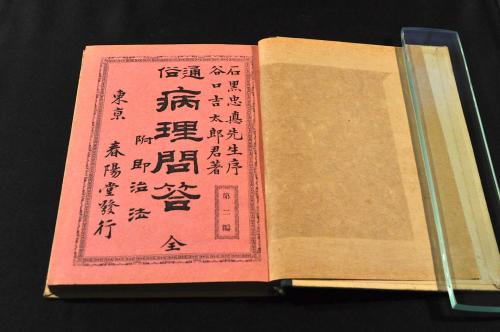 石黒忠悳先生序
谷口吉太郎君著
第二編
通俗
病理問答
全
附即治法
東京
春陽堂發行